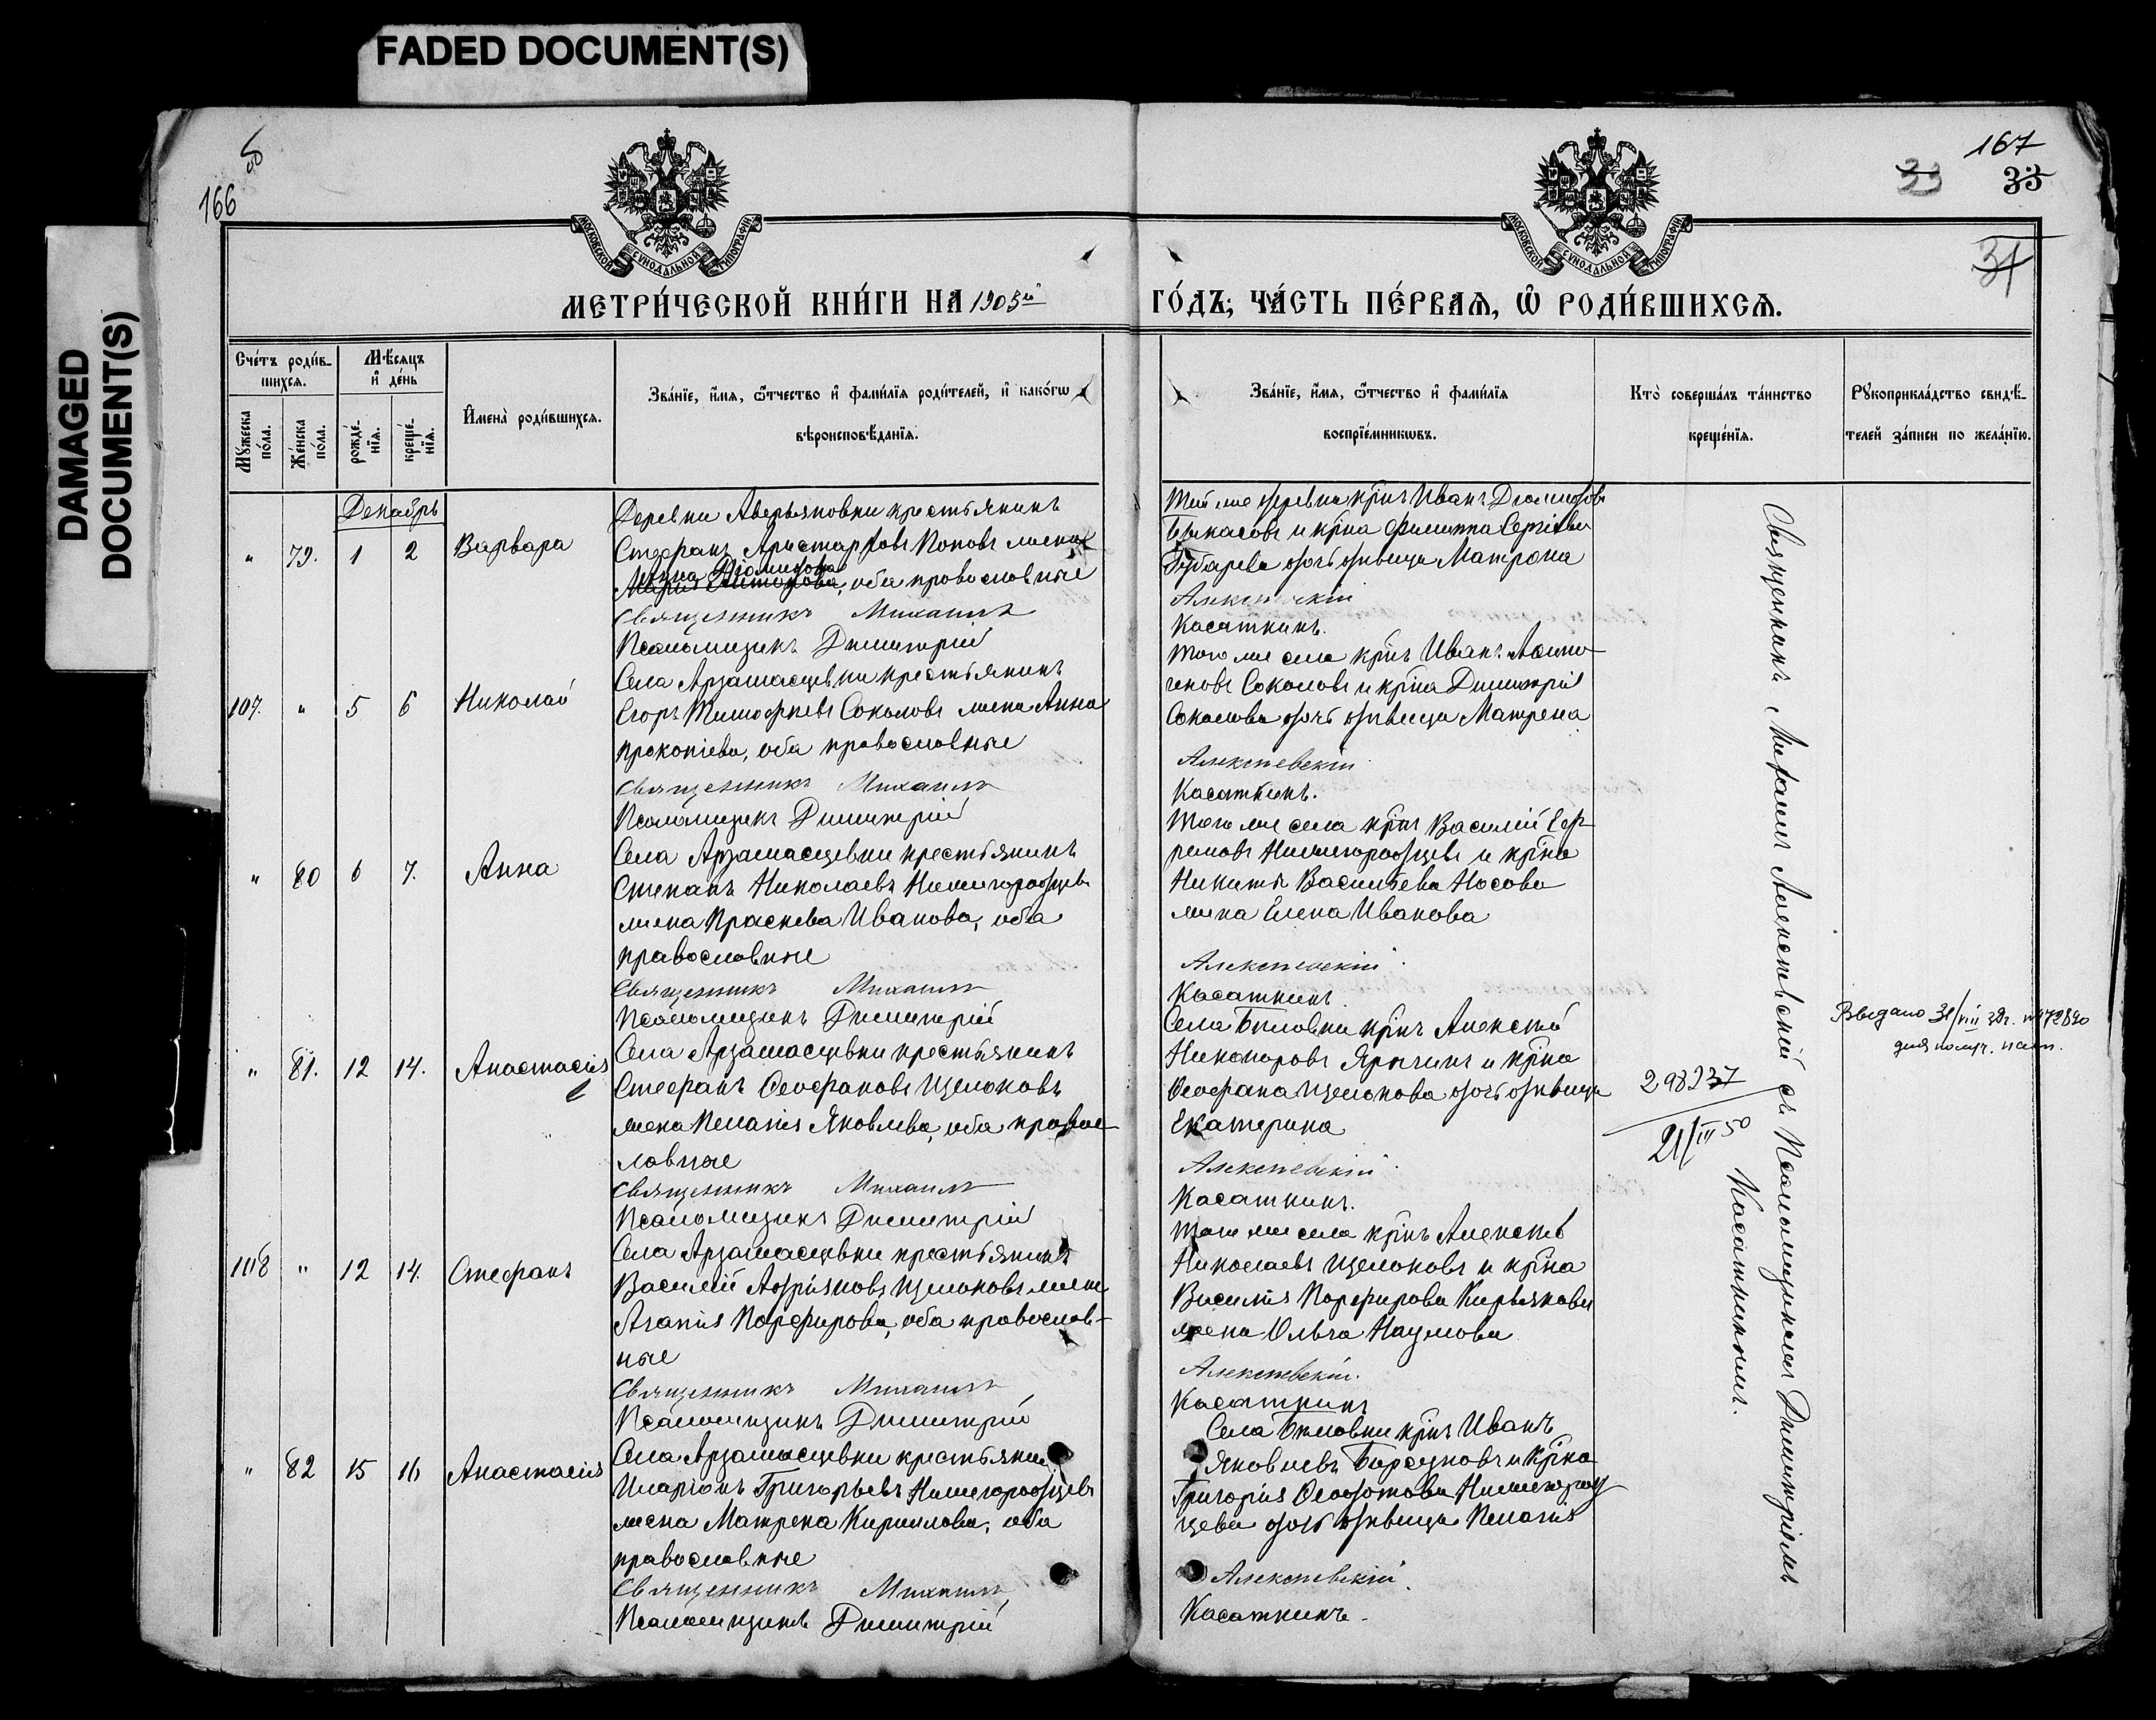 FADED DOCUMENT(S)
DAMAGED
DOCUMENT(S)
166
167
33
33
31
МОСКОВСКОЙ СѴНОДАЛЬНОЙ ТИПОГРАФІИ
МОСКОВСКОЙ СѴНОДАЛЬНОЙ ТИПОГРАФІИ
МЕТРИ́ЧЕСКОЙ КНИ́ГИ НА 1903й
ГО́ДЪ; ЧА́СТЬ ПЕ́РВАЯ, Ѡ РОДИ́ВШИХСЯ.
Сче́тъ роди́в-
шихся.
Мѣ́сяцъ
и҆ де́нь
Мꙋжеска по́ла.
Же́нска по́ла.
рожде́-
нїя.
креще́-
нїя.
И҆мена̀ роди́вшихся.
Зва́нїе, и҆́мя, ѻ҆́тчество и҆ фами́лїя роди́телей, и҆ како́гѡ
вѣроисповѣ́данїя.
Зва́нїе, и҆́мя, ѻ҆́тчество и҆ фами́лїя
воспрїе́мникѡвъ.
Кто̀ соверша́лъ та́инство
креще́нїя.
Рꙋкоприкла́дство свидѣ́-
телей за́писи по жела́нїю.
Декабрь
" 79. 1 2 Варвара
Деревни Аверьяновки крестьянинъ
Стефанъ Аристарховъ Поповъ жена
Анна Діомидова
Марія, оба православные
Священникъ Михаилъ
Псаломщикъ Димитрій
Той же деревни кр̃нъ Иванъ Діомидовъ
Бикасовъ и кр̃на Филиппа Сергіева
Губарева дочь дѣвица Матрона
Алексѣевскій
Касаткинъ.
107. " 5 6 Николай
Села Арзамасцевки крестьянинъ
Егоръ Тимофѣевъ Соколовъ жена Анна
Прокопіева, оба православные
Священникъ Михаилъ
Псаломщикъ Димитрій
Того же села кр̃нъ Иванъ
Соколовъ и кр̃на Димитрія
Соколова дочь дѣвица Матрена
Алексѣевскій
Касаткинъ.
" 80 6 7. Анна
Села Арзамасцевки крестьянинъ
Степанъ Николаевъ Нижегородцевъ
жена Праскева Иванова, оба
православные
Священникъ Михаилъ
Псаломщикъ Димитрій
Того же села кр̃нъ Василій Еф-
ремовъ Нижегородцевъ и кр̃на
Никиты Васильева Носова
жена Елена Иванова
Алексѣевскій
Касаткинъ
" 81. 12 14. Анастасія
Села Арзамасцевки крестьянинъ
Стефанъ Ѳеофановъ Щелоковъ
жена Пелагія Яковлева, оба правос-
лавные
Священникъ Михаилъ
Псаломщикъ Димитрій
Села Бѣловки кр̃нъ Алексѣй
Никаноровъ Ярыгинъ и кр̃на
Ѳеофана Щелокова дочь дѣвица
Екатерина
Алексѣевскій
Касаткинъ.
298237
21/III 50
Выдано 31/VIII 38г. №472890
для получ. пасп.
108 " 12 14. Стефанъ
Села Арзамасцевки крестьянинъ
Василій Андріановъ Щелоковъ жена
Агапія Порфирова, оба православ-
ные
Священникъ Михаилъ
Псаломщикъ Димитрій
Того же села кр̃нъ Алексѣй
Николаевъ Щелоковъ и кр̃на
Василія Порфирова Кирьякова
жена Ольга Наумова
Алексѣевскій.
Касаткинъ
" 82 15 16 Анастасія
Села Арзамасцевки крестьянинъ
Иларіонъ Григорьевъ Нижегородцевъ
жена Матрена Кириллова, оба
православные
Священникъ Михаилъ
Псаломщикъ Димитрій
Села Бѣловки кр̃нъ Иванъ
Яковлевъ Барсуковъ и кр̃на
Григорія Ѳеодотова Нижегород
цева дочь дѣвица Пелагія
Алексѣевскій.
Касаткинъ.
Священникъ Михаилъ Алексѣевскій съ Псаломщикомъ Димитріемъ
Касаткинымъ.